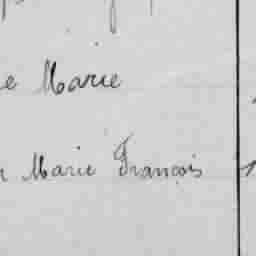 e Marie
Marie François